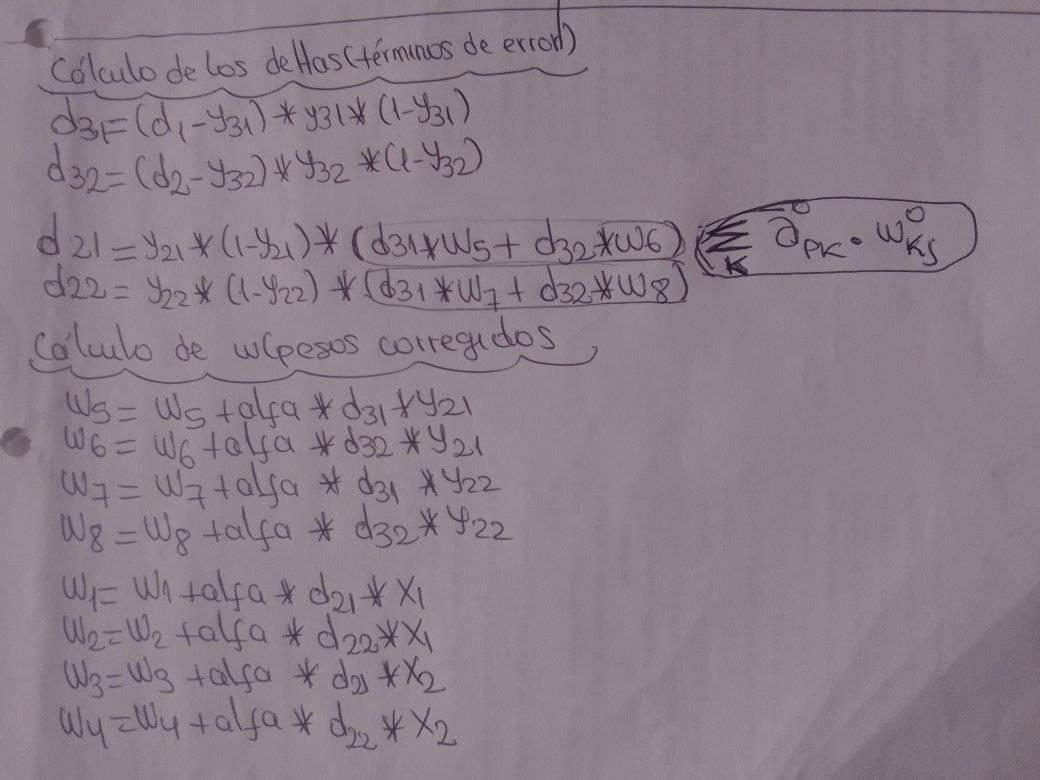 Cálculo de los deltas (términos de error)
d31=(d1-y31)*y31*(1-y31)
d32=(d2-y32)*y32*(1-y32)
d21=y21*(1-y21)*(d31*w5+d32*w6) Σ K ∂°PK · W°Kj
d22=y22*(1-y22)*(d31*w7+d32*w8)
Cálculo de w(pesos corregidos
w5=w5+alfa*d31*y21
w6=w6+alfa*d32*y21
w7=w7+alfa*d31*y22
w8=w8+alfa*d32*y22
w1=w1+alfa*d21*x1
w2=w2+alfa*d22*x1
w3=w3+alfa*d21*x2
w4=w4+alfa*d22*x2